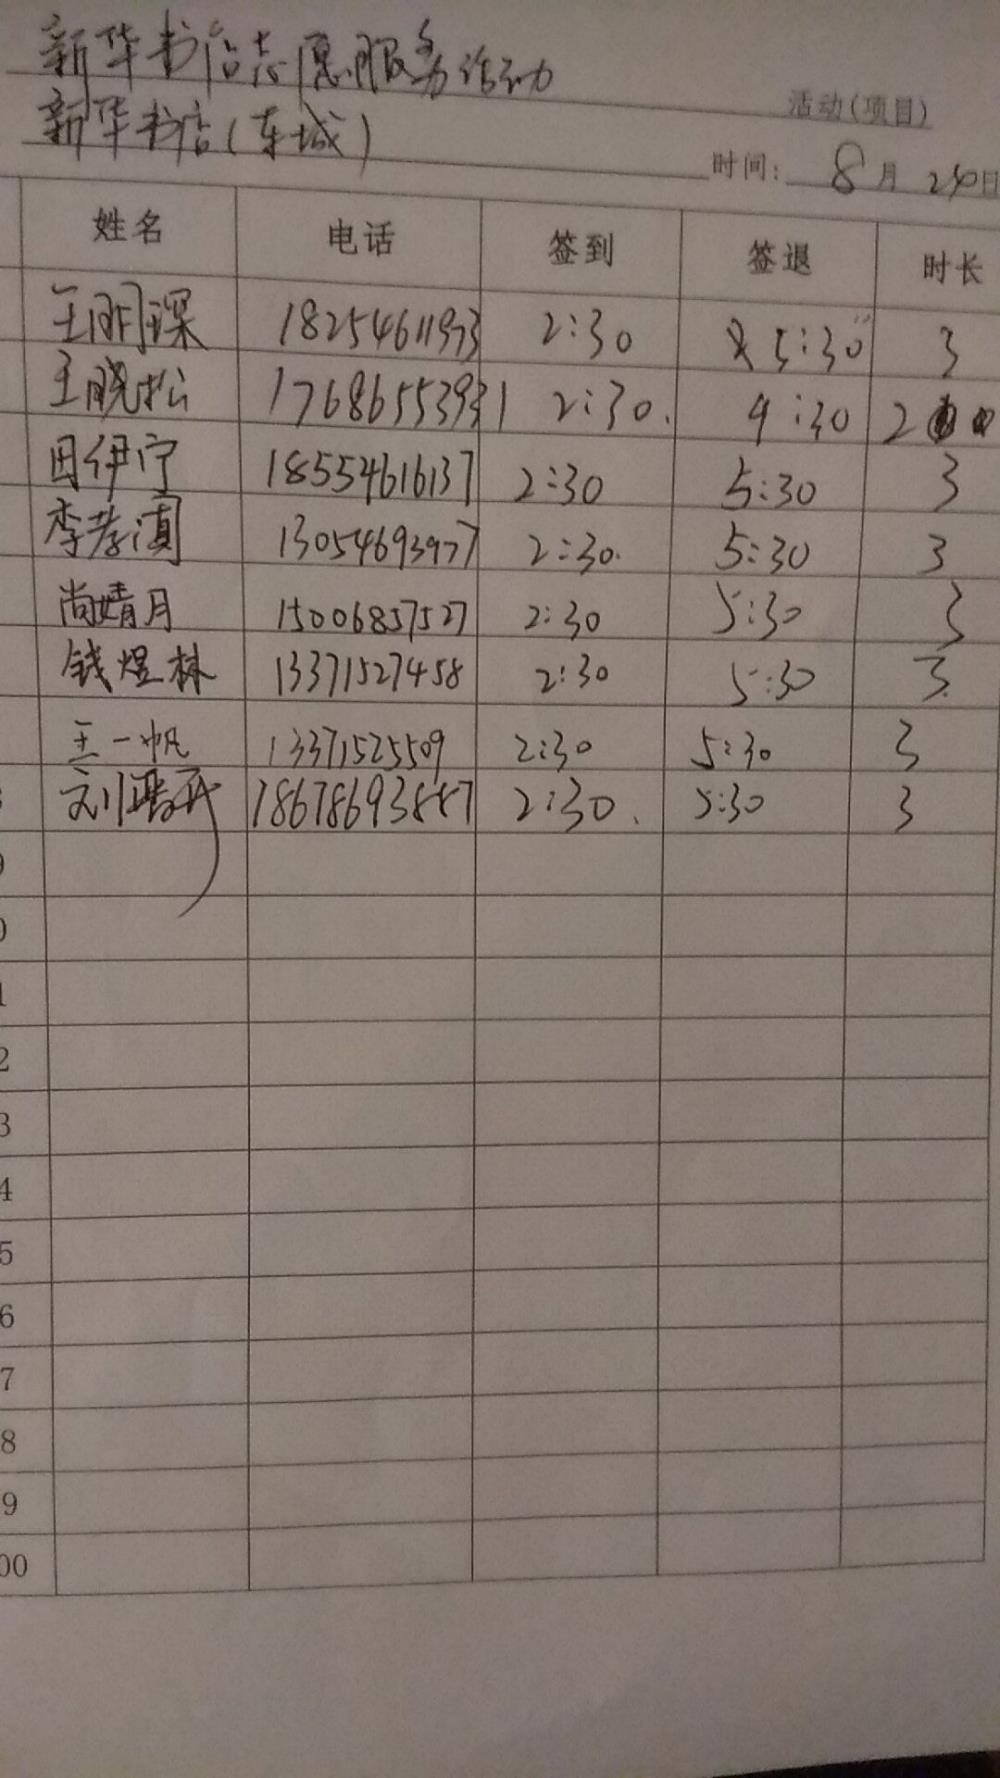 新华书店志愿服务活动 活动(项目)
新华书店(东城) 时间: 8月 日
姓名 电话 签到 签退 时长
王明琛 18254611973 2:30 5:30 3
王晓松 17686553931 2:30. 4:30 2
田伊宁 18554616137 2:30 5:30 3
李孝滇 13054693977 2:30. 5:30 3
尚婧月 15006857527 2:30 5:30 3
钱煜林 13371527458 2:30 5:30 3.
王一帆 13371525509 2:30 5:30 3
刘 2:30. 5:30 3
9
0
1
2
3
4
5
6
7
8
9
00